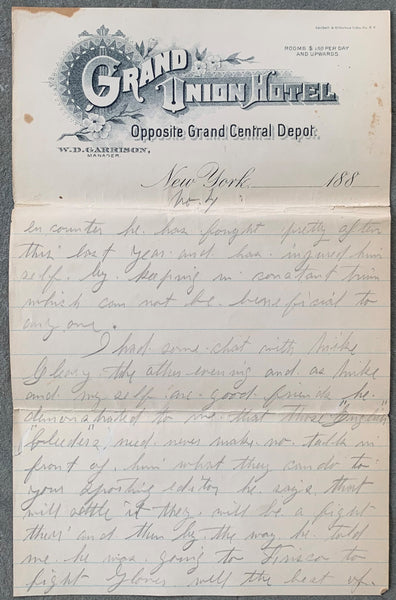 ROOMS $1.00 PER DAY
AND UPWARDS.
GRAND
UNION HOTEL
Opposite Grand Central Depot.
W. D. GARRISON,
MANAGER.
New York 188
No. 4
encounter he. has fought pretty often
this last year and has injured him
self. by. keeping in constant trim
which can not be. beneficial to
any one.
I had some chat with Mike
Cleary the other evening and as Mike
and my self are good friends he.
demonstrated to me. that those "English"
"Bleeders" need never make no. talk in
front of. him what they can do to
your sporting editor he. says that
will settle it they. will be a fight
their and then by. the way he told
me he was going to Frisco to
fight Glover well the best of.